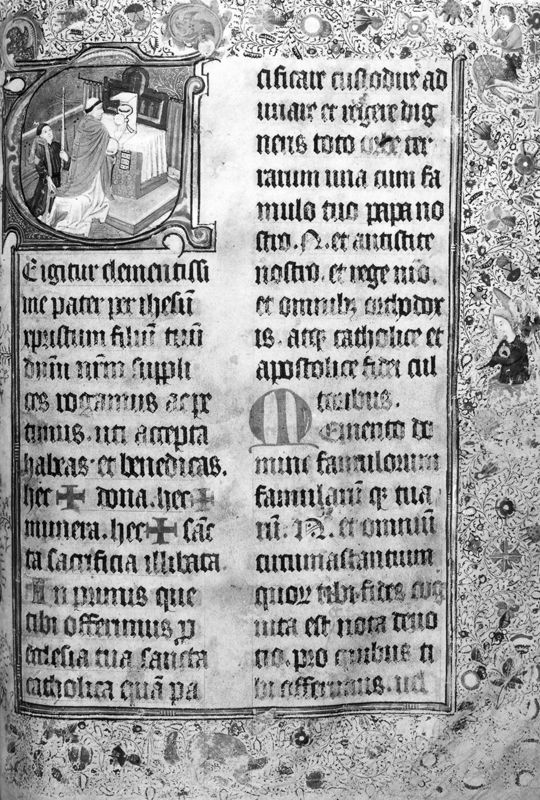 TEigitur clementissi
me pater per ihesū
xpristum filiū tuū
dn̄m nr̄m suppli
ces rogamus ac pe
timus. uti accepta
habeas et benedicas.
hec ✠ dona. hec ✠
munera. hec ✠ sāc
ta sacrificia illibata.
In primis que
tibi offerimus ꝓ
ecclesia tua sancta
catholica quā pa
cificare custodire ad
unare et regere dig
neris toto orbe ter
rarum una cum fa
mulo tuo papa no
stro .N. et antistite
nostro. et rege nr̄o.
et omnibꝫ orthodox
is. atqꝫ catholice et
apostolice fidei cul
toribus.
MEmento do
mine famulorum
famularū qꝫ tua
rū. N. et omniū
circumastantium
quoꝝ tibi fides cog
nita est nota deuo
tio. pro quibus ti
bi offerimus. uel